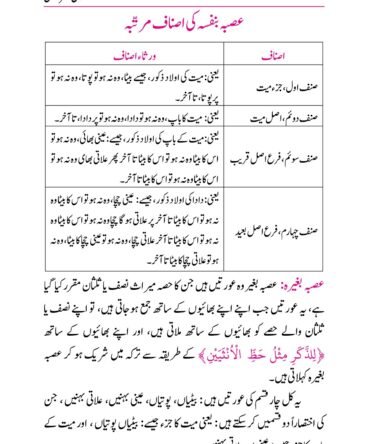 عصبہ بنفسہ کی اصناف مرتبہ
اصناف
ورثاءِ اصناف
صنف اول، جزءِ میت
یعنی: میت کی اولاد ذکور، جیسے: بیٹا، وہ نہ ہو تو پوتا، وہ نہ ہو تو
پر پوتا، تا آخر۔
صنف دوئم، اصل میت
یعنی: میت کا باپ، وہ نہ ہو تو دادا، وہ نہ ہو تو پر دادا، تا آخر۔
صنف سوئم، فرع اصل قریب
یعنی: میت کے باپ کی اولاد ذکور، جیسے: عینی بھائی، وہ نہ ہو تو
اس کا بیٹا وہ نہ ہو تو اس کا بیٹا تا آخر پھر علاتی بھائی وہ نہ ہو
تو اس کا بیٹا وہ نہ ہو تو اس کا بیٹا تا آخر۔
صنف چہارم، فرع اصل بعید
یعنی: دادا کی اولاد ذکور، جیسے: عینی چچا، وہ نہ ہو تو اس کا بیٹا وہ
نہ ہو تو اس کا بیٹا تا آخر پر علاتی ہو گا چچا وہ نہ ہو تو اس کا بیٹا وہ نہ
ہو تو اس کا بیٹا تا آخر علاتی چچا، وہ نہ ہو تو عینی چچا کا بیٹا، وہ نہ
ہو تو علاتی چچا کا بیٹا تا آخر۔
عصبہ بغیرہ: عصبہ بغیرہ وہ عورتیں ہیں جن کا حصہ میراث نصف یا ثلثان مقرر کیا گیا
ہے، یہ عورتیں جب اپنے اپنے بھائیوں کے ساتھ جمع ہو جاتی ہیں، تو اپنے نصف یا
ثلثان والے حصے کو بھائیوں کے ساتھ ملاتی ہیں، اور اپنے بھائیوں کے ساتھ
﴿لِلذَّكَرِ مِثْلُ حَظِّ الْأُنْثَيَيْنِ﴾ کے طریقہ سے ترکہ میں شریک ہو کر عصبہ
بغیرہ کہلاتی ہیں۔
یہ کل چار قسم کی عورتیں ہیں: بیٹیاں، پوتیاں، عینی بہنیں، علاتی بہنیں، جن
کی اختصاراً دو قسمیں کر سکتے ہیں: یعنی میت کا جزء جیسے: بیٹیاں پوتیاں، اور میت کے